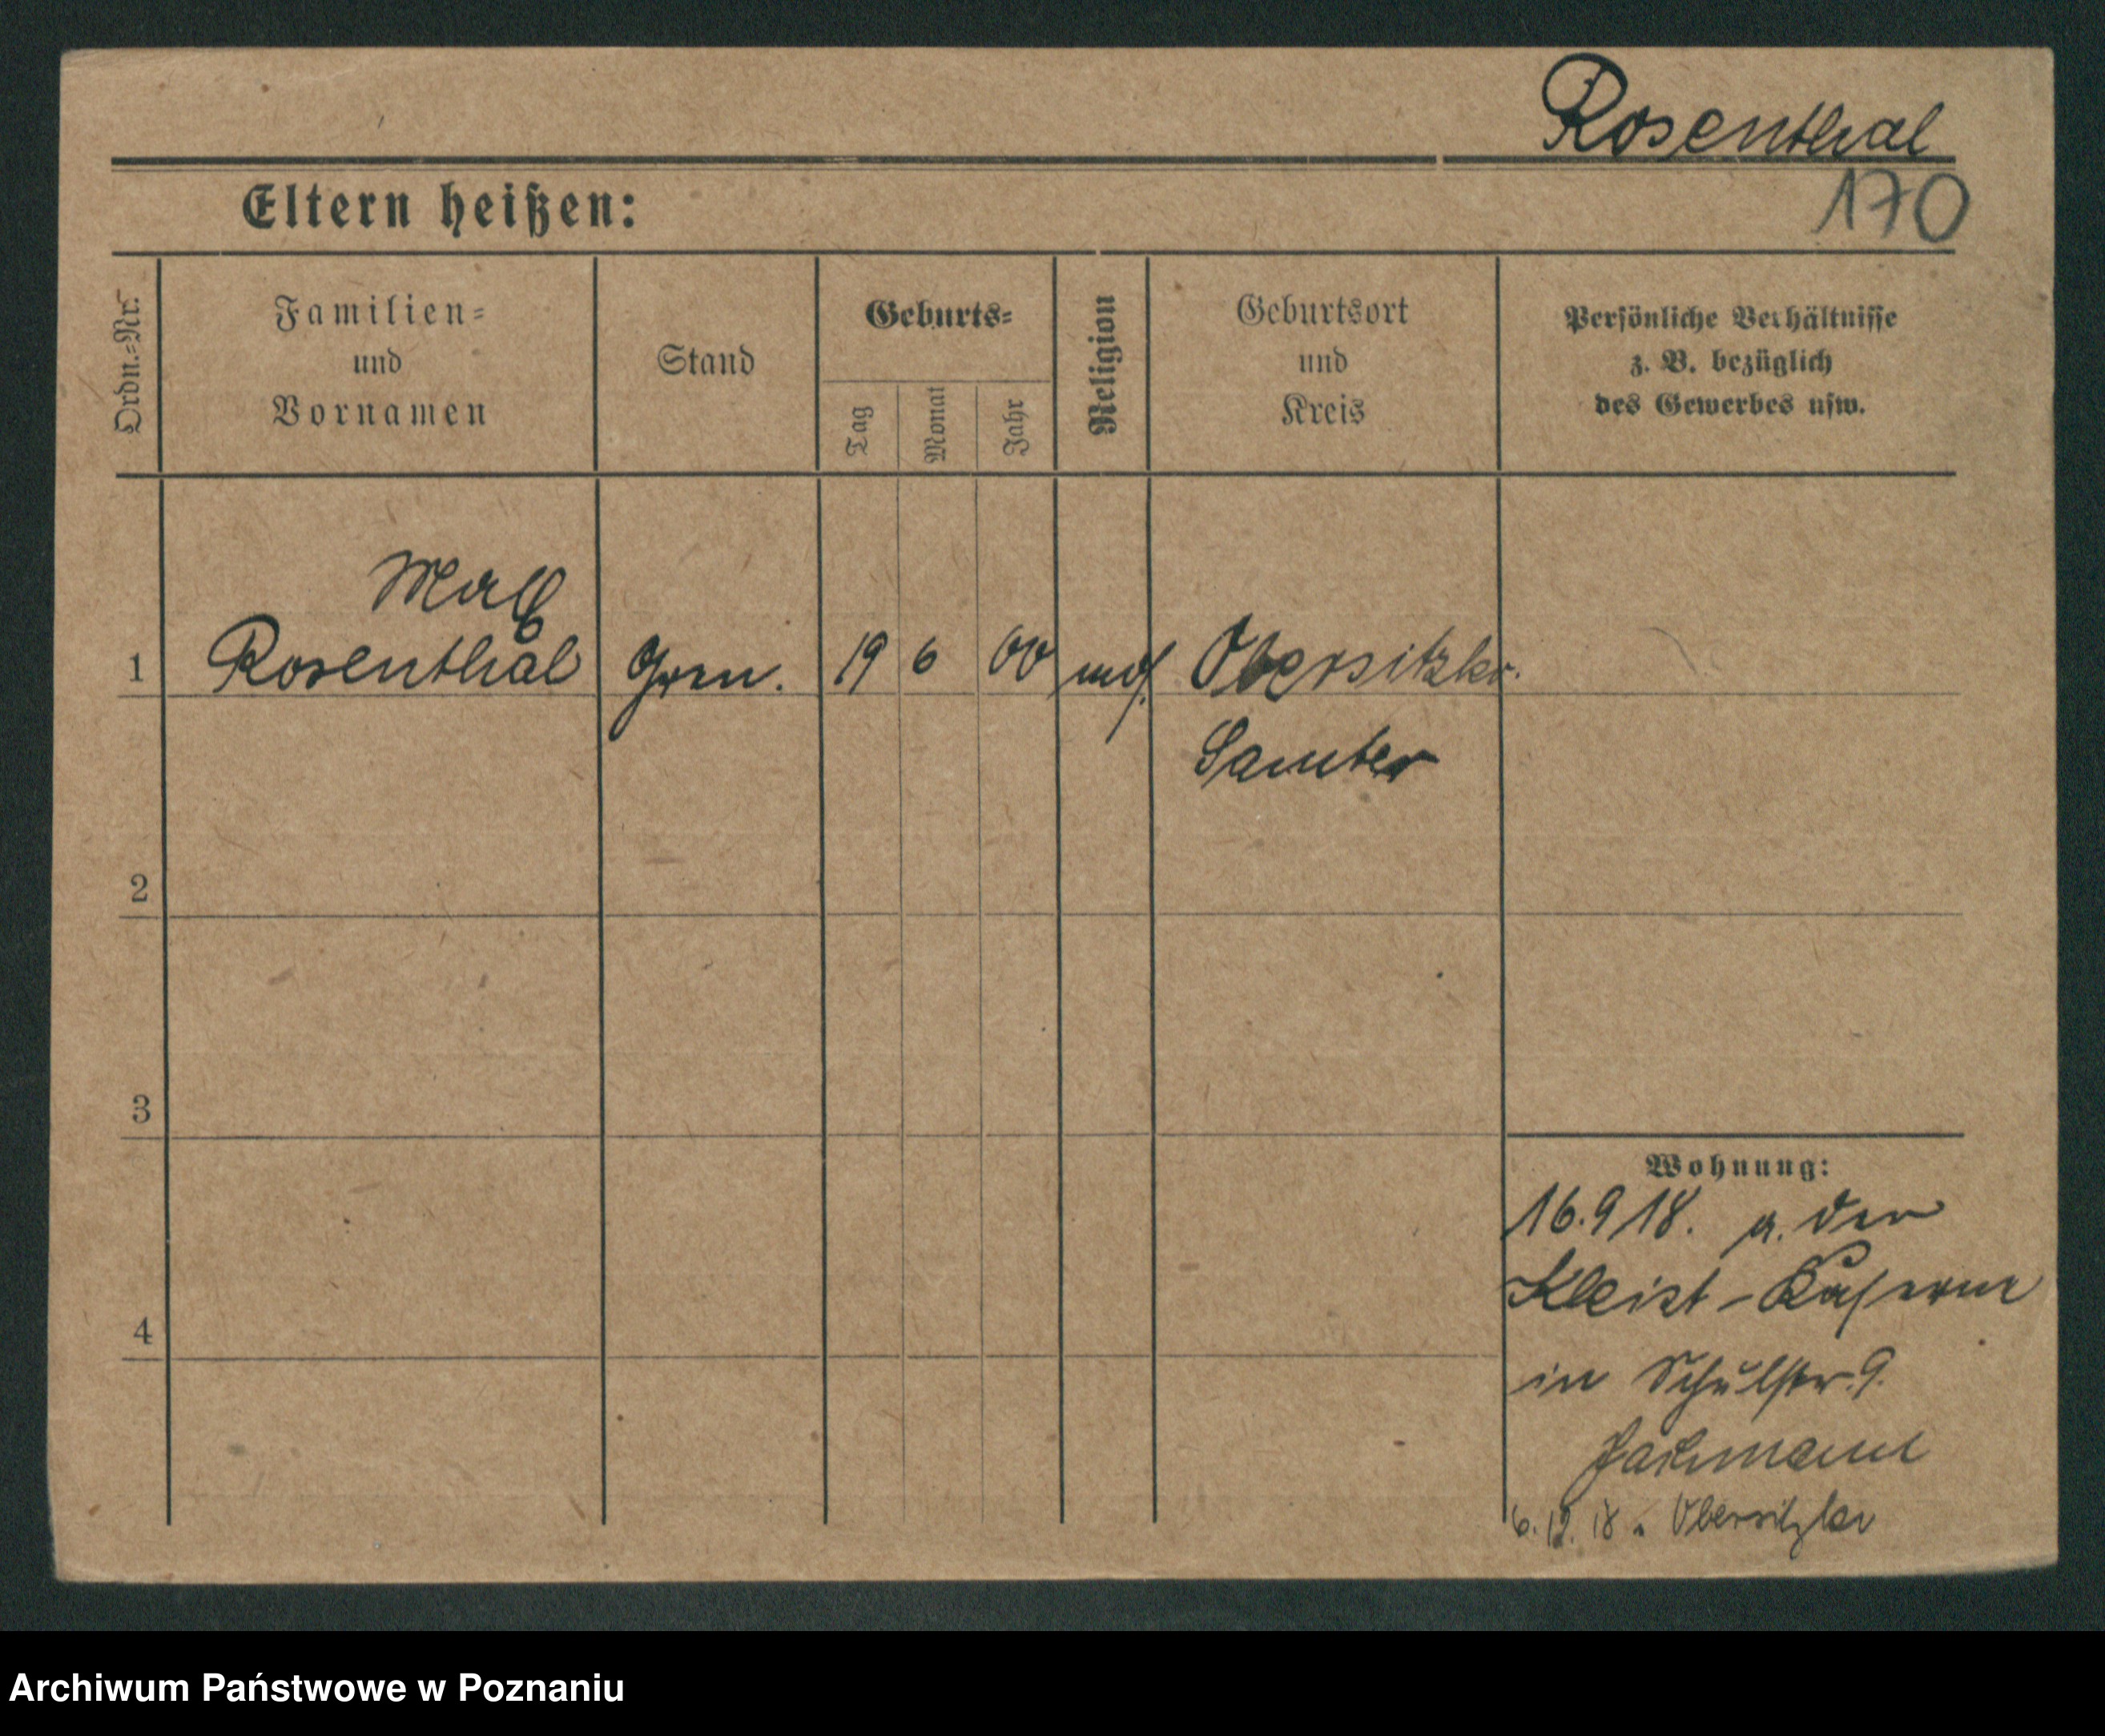 Rosenthal
170
Eltern heißen:
Ordn.=Nr.
Familien=
und
Vornamen
Stand
Geburts=
Tag
Monat
Jahr
Religion
Geburtsort
und
Kreis
Persönliche Verhältnisse
z. B. bezüglich
des Gewerbes usw.
Max
1 Rosenthal Gren. 19 6 00 mos. Obersitzko.
Samter
2
3
4
Wohnung:
16.9.18. a. der
Kleist-Kaserne
in Schulstr. 9.
6.12.18. Obersitzko
Archiwum Państwowe w Poznaniu